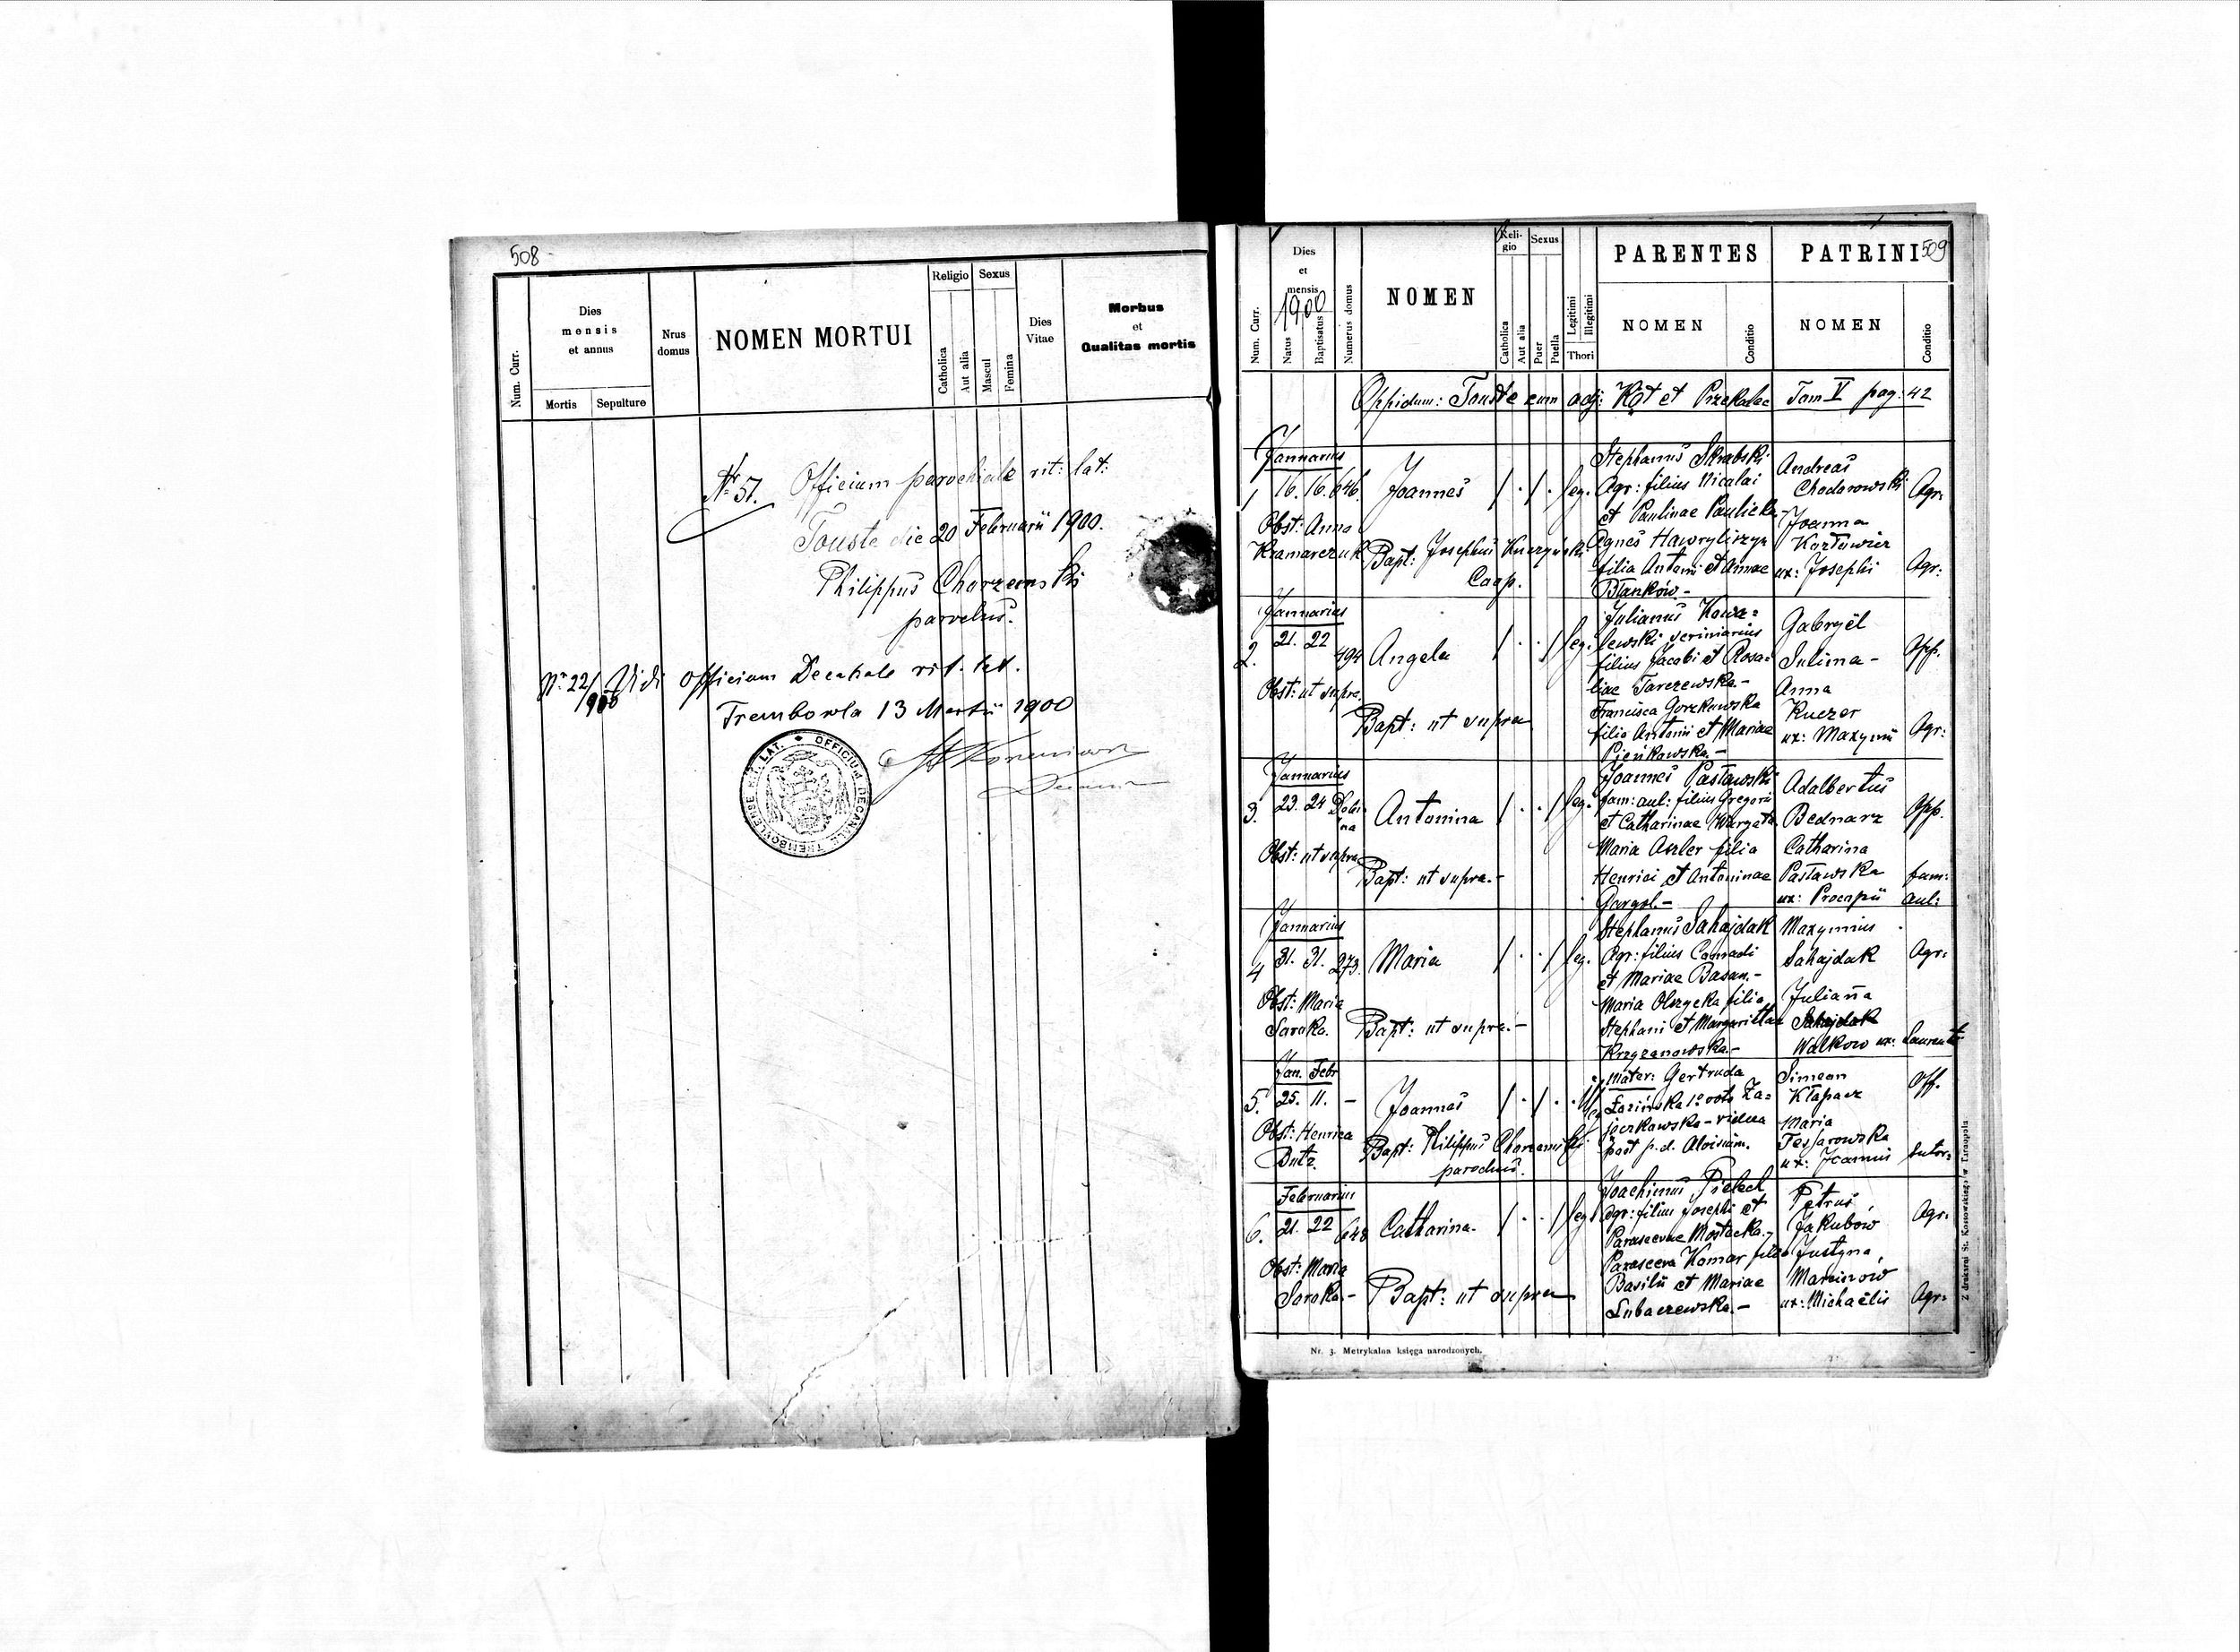 508
Num. Curr.
Dies mensis et annus
Mortis
Sepulture
Nrus domus
NOMEN MORTUI
Religio
Catholica
Aut alia
Sexus
Mascul
Femina
Dies Vitae
Morbus
et
Qualitas mortis
Nr 51. Officium parochiale rit: lat:
Touste die 20 Februarii 1900.
Philippus Chorzemski
parochus.
Nr 22/900 Vidi Officium Decanale rit. lat.
Trembowla 13 Martii 1900
OFFICIUM DECANALE TREMBOVLENSE RIT. LAT.
509
Num. Curr.
Dies
et
mensis
1900
Natus
Baptisatus
Numerus domus
NOMEN
Religio
Catholica
Aut alia
Sexus
Puer
Puella
Legitimi
Illegitimi
Thori
PARENTES
NOMEN
Conditio
PATRINI
NOMEN
Conditio
Oppidum: Touste cum adj: Kąt et Przekalec Tom V pag: 42
Januarius
1 16. 16. 646. Joannes / . / . leg.
Obst: Anna
Kramarczuk
Bapt: Josephus Kuczyński
Coop.
Stephanus Skrabski
Agr: filius Nicolai
et Paulinae Paulicka
Agnes Hawryliszyn
filia Antoni et Annae
Blanków -
Andreas
Chodorowski Agr.
Joanna
Kozłowicz
ux: Josephi Agr:
Januarius
2. 21. 22 494 Angela / . . / leg.
Obst: ut supra.
Bapt: ut supra
Julianus Kowa=
lewski scriniarius
filius Jacobi et Rosa=
liae Tarczewska.-
Francisca Gorzkowska
filia Antonii et Mariae
Pieńkowska.-
Gabryël
Sulima - Opp.
Anna
Kuczer
ux: Maxymii Agr:
Januarius
3. 23. 24 Dolina Antonina / . . / leg.
Obst: ut supra
Bapt: ut supra.-
Joannes Pasławski
fam: aul: filius Gregorii
et Catharinae
Maria Aszler filia
Henrici et Antoninae
Gargol.-
Adalbertus
Bednarz Opp.
Catharina
Pasławska fam:
ux: Procopii aul:
Januarius
4 31. 31. 273. Maria / . . / leg.
Obst: Maria
Soroka.
Bapt: ut supra.-
Stephanus Sahajdak
Agr: filius Conradi
et Mariae Basan.-
Maria Olszycka filia
Stephani et Margarittae
Krzyzanowska.-
Maxymius
Sahajdak Agr:
Julianna
Sahajdak
Walkow ux: Laurentii
Jan. Febr
5. 25. 11. - Joannes / . / .
Obst: Henrica
Dutz.
Bapt: Philippus Chorzemski
parochus.
Mater: Gertruda
Łozińska 1º voto Za=
jączkowska - vidua
post p. d. Aloisium.
Simeon
Kłapacz Off.
Maria
Tesarowska
ux: Joannis sutor:
Februarius
6. 21. 22 648 Catharina. / . . / leg
Obst: Maria
Soroka.-
Bapt: ut supra
Joachimus Pielech
agr: filius Josephi et
Parascevae Mostacka.-
Parasceva Komar filia
Basilii et Mariae
Lubaczewska.-
Petrus
Jakubów Agr.
Justyna
Marcinów
ux: Michaëlis Agr:
Nr. 3. Metrykalna księga narodzonych.
Z drukarni St. Kossowskiego w Tarnopolu